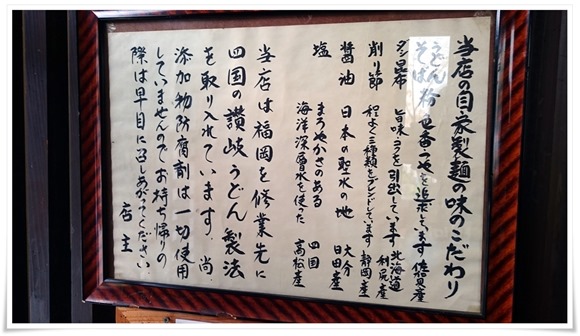 当店の自家製麺の味のこだわり
うどん
そば 粉 色香つやを追求しています 佐賀産
ダシ昆布 旨味コクを引出しています 北海道
利尻産
削り節 程よく三種類をブレンドしています 静岡産
醤油 日本の聖水の地 大分
日田産
塩 まろやかさのある
海洋深層水を使った 四国
高松産
当店は福岡を修業先に
四国の讃岐うどん製法
を取り入れています。尚
添加物防腐剤は一切使用
していませんのでお持ち帰りの
際は早目に召しあがってください
店主